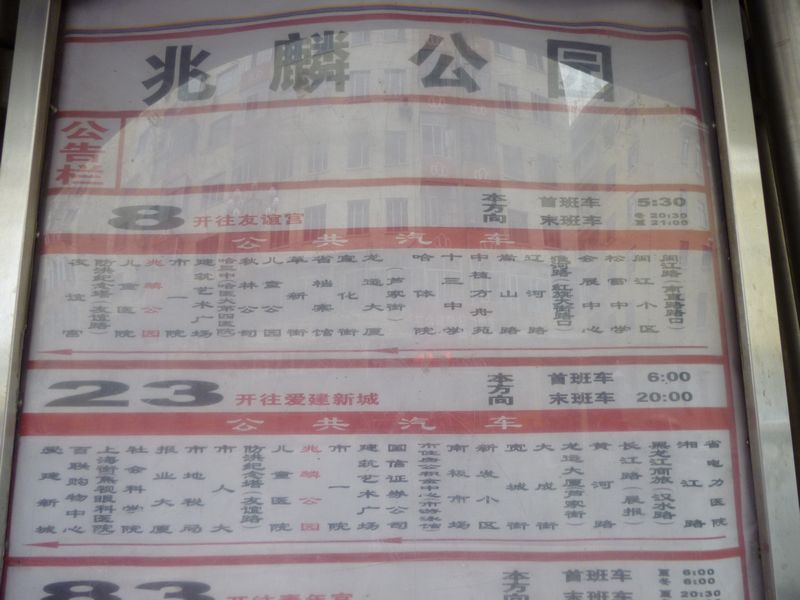 兆麟公园
公告栏
8 开往友谊宫 本方向 首班车 5:30
末班车 冬 20:30
夏 21:00
公共汽车
友谊宫
防洪纪念塔(友谊路)
儿童医院
兆麟公园
市一院
建筑艺术广场
哈三中(哈医大第四医院)
秋林公司
儿童公园
革新街
省档案馆
宣化街
龙运大厦(芦家街)
哈体院
十三中学
中植方舟苑
嵩山路
辽河路
淮河路(红旗大街路口)
会展中心
松雷中学
闽江小区
闽江路(南直路路口)
23 开往爱建新城 本方向 首班车 6:00
末班车 20:00
公共汽车
爱建新城
百联购物中心
上海街(集领眼科医院)
社会科学院
报业大厦
市地税局
市人大
防洪纪念塔(友谊路)
儿童医院
兆麟公园
市一院
建筑艺术广场
国信证券公司
市住房公积金中心(市游泳馆)
南极市场
新发小区
宽城街
大成街
龙运大厦(芦家街)
黄河路
长江路(晨报)
黑龙江商旅(汉水路)
湘江路
省电力医院
83 开往青年宫 本方向 首班车 夏 6:00
冬 6:00
末班车 夏 20:30